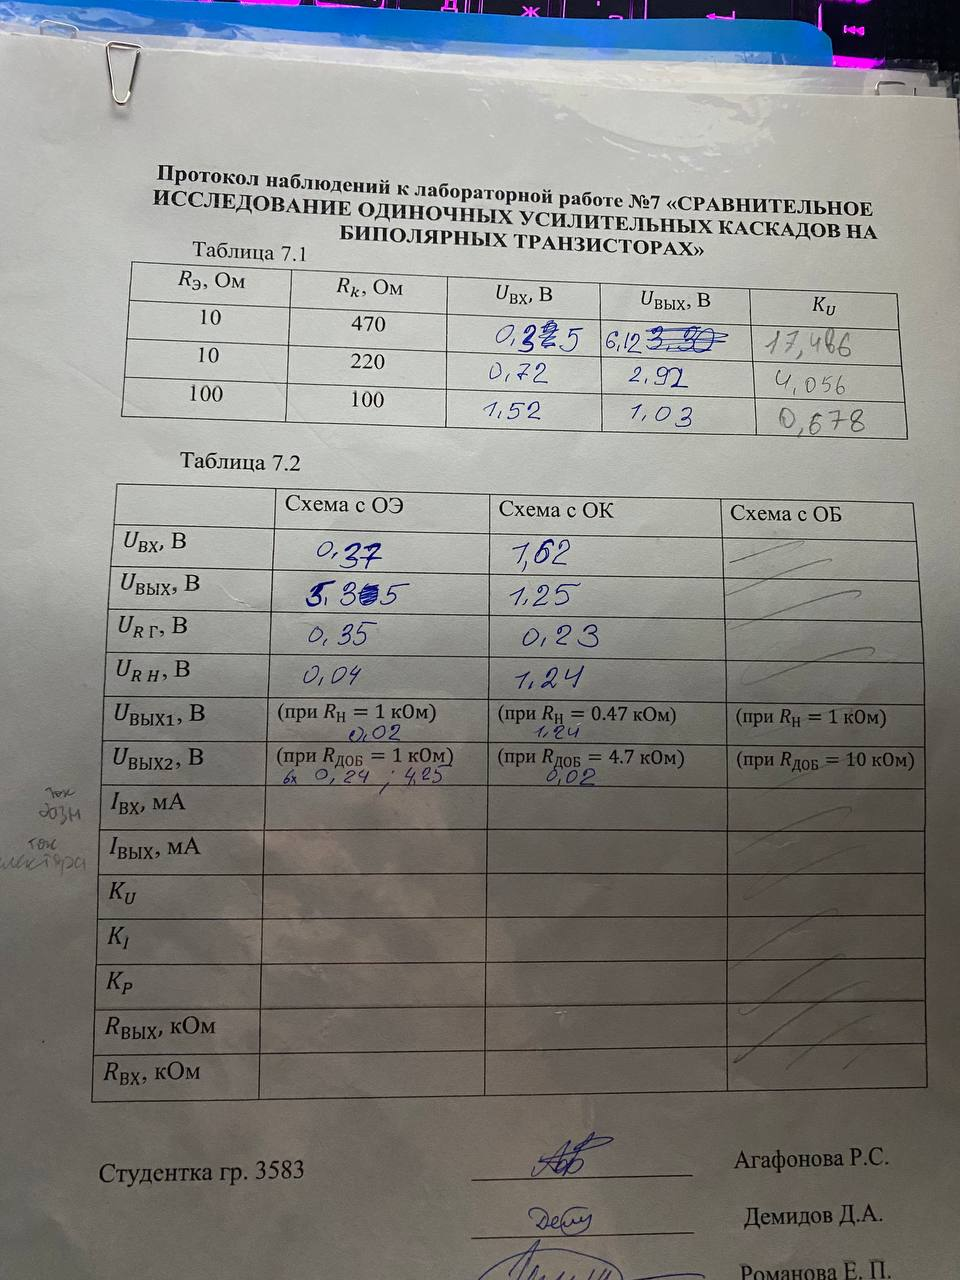 Протокол наблюдений к лабораторной работе №7 «СРАВНИТЕЛЬНОЕ
ИССЛЕДОВАНИЕ ОДИНОЧНЫХ УСИЛИТЕЛЬНЫХ КАСКАДОВ НА
БИПОЛЯРНЫХ ТРАНЗИСТОРАХ»
Таблица 7.1
R_Э, Ом R_k, Ом U_ВХ, В U_ВЫХ, В K_U
10 470 0,35 6,12 17,486
10 220 0,72 2,92 4,056
100 100 1,52 1,03 0,678
Таблица 7.2
Схема с ОЭ Схема с ОК Схема с ОБ
U_ВХ, В 0,37 1,62
U_ВЫХ, В 5.35 1,25
U_R Г, В 0,35 0,23
U_R Н, В 0,04 1,24
U_ВЫХ1, В (при R_Н = 1 кОм) 0,02 (при R_Н = 0.47 кОм) 1,24 (при R_Н = 1 кОм)
U_ВЫХ2, В (при R_ДОБ = 1 кОм) вх 0,24 ; 4,25 (при R_ДОБ = 4.7 кОм) 0,02 (при R_ДОБ = 10 кОм)
ток
I_ВХ, мА
ток
I_ВЫХ, мА
K_U
K_I
K_P
R_ВЫХ, кОм
R_ВХ, кОм
Студентка гр. 3583 Агафонова Р.С.
Демидов Д.А.
Романова Е. П.